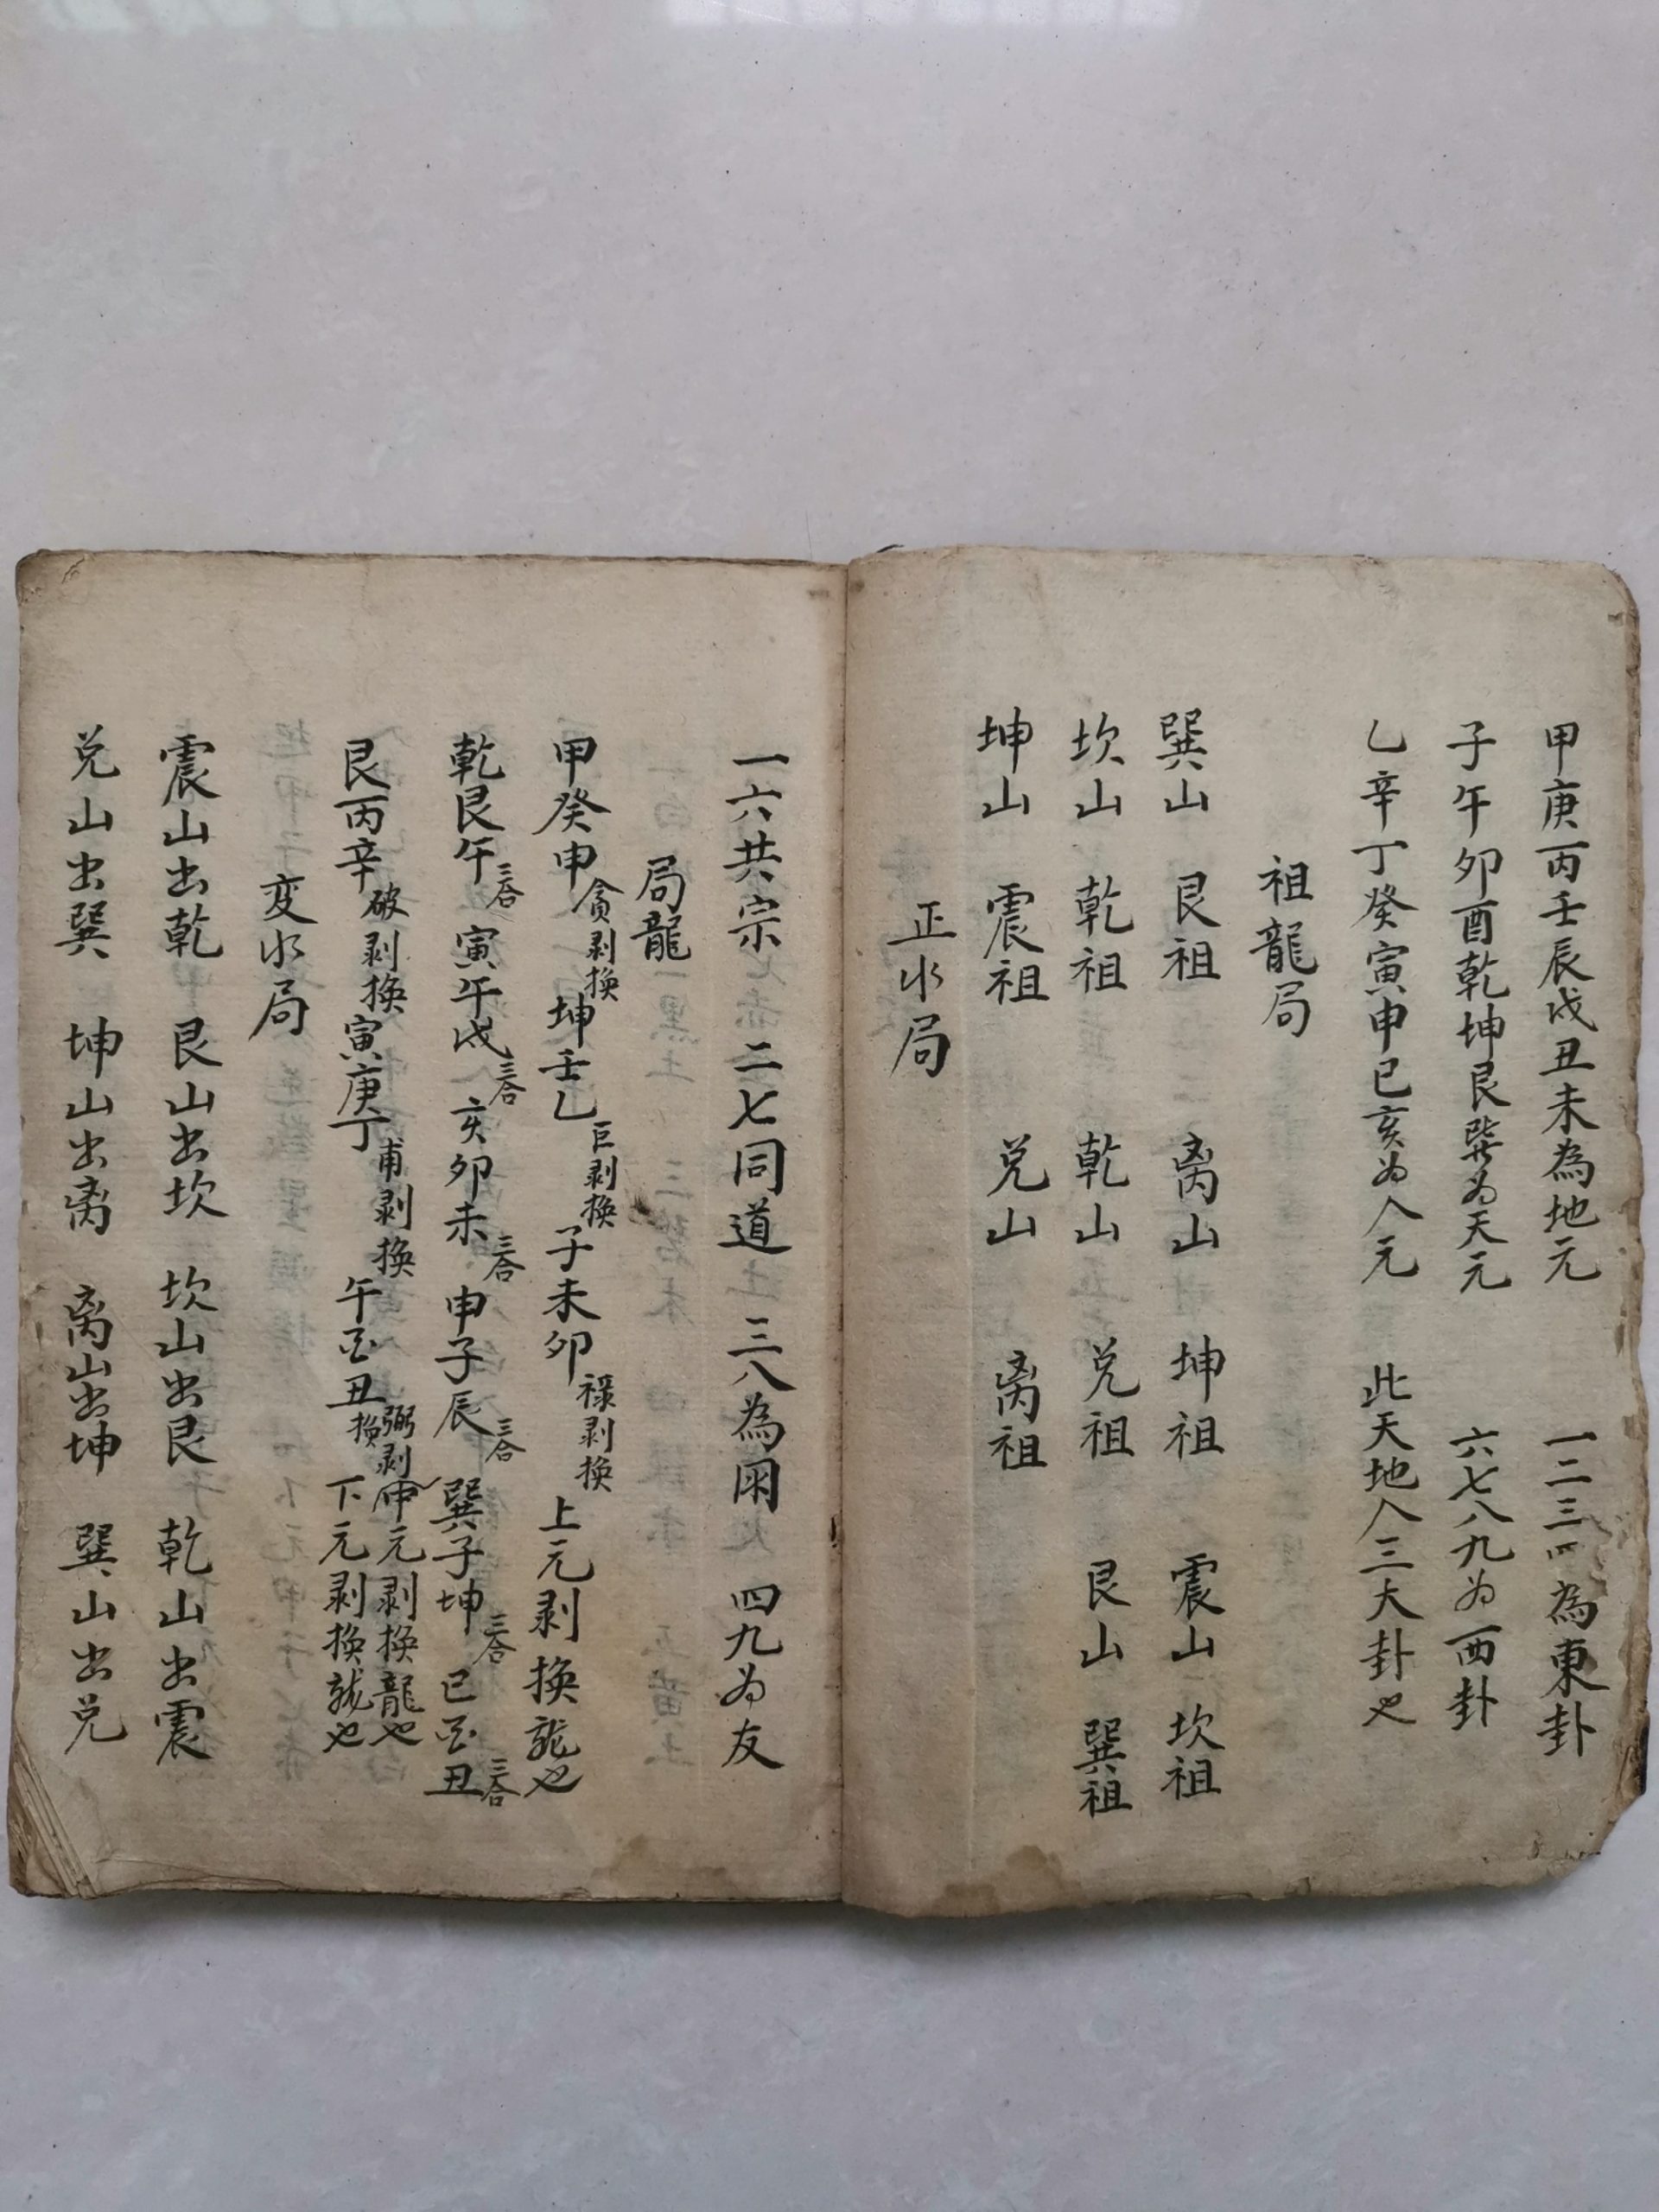 甲庚丙壬辰戌丑未為地元 一二三四為東卦
子午卯酉乾坤艮巽为天元 六七八九为西卦
乙辛丁癸寅申巳亥为人元 此天地人三大卦也
祖龍局
巽山 艮祖 离山 坤祖 震山 坎祖
坎山 乾祖 乾山 兑祖 艮山 巽祖
坤山 震祖 兑山 离祖
正水局
一六共宗 二七同道 三八為朋 四九为友
局龍
甲癸申貪剥換 坤壬乙巨剥換 子未卯祿剥換 上元剥換龍也
乾艮午三合 寅午戌三合 亥卯未三合 申子辰三合 巽子坤三合 巳酉丑三合
艮丙辛破剥換 寅庚丁甫剥換 午酉丑弼剥換 中元剥換龍也 下元剥換龍也
変水局
震山出乾 艮山出坎 坎山出艮 乾山出震
兑山出巽 坤山出离 离山出坤 巽山出兑